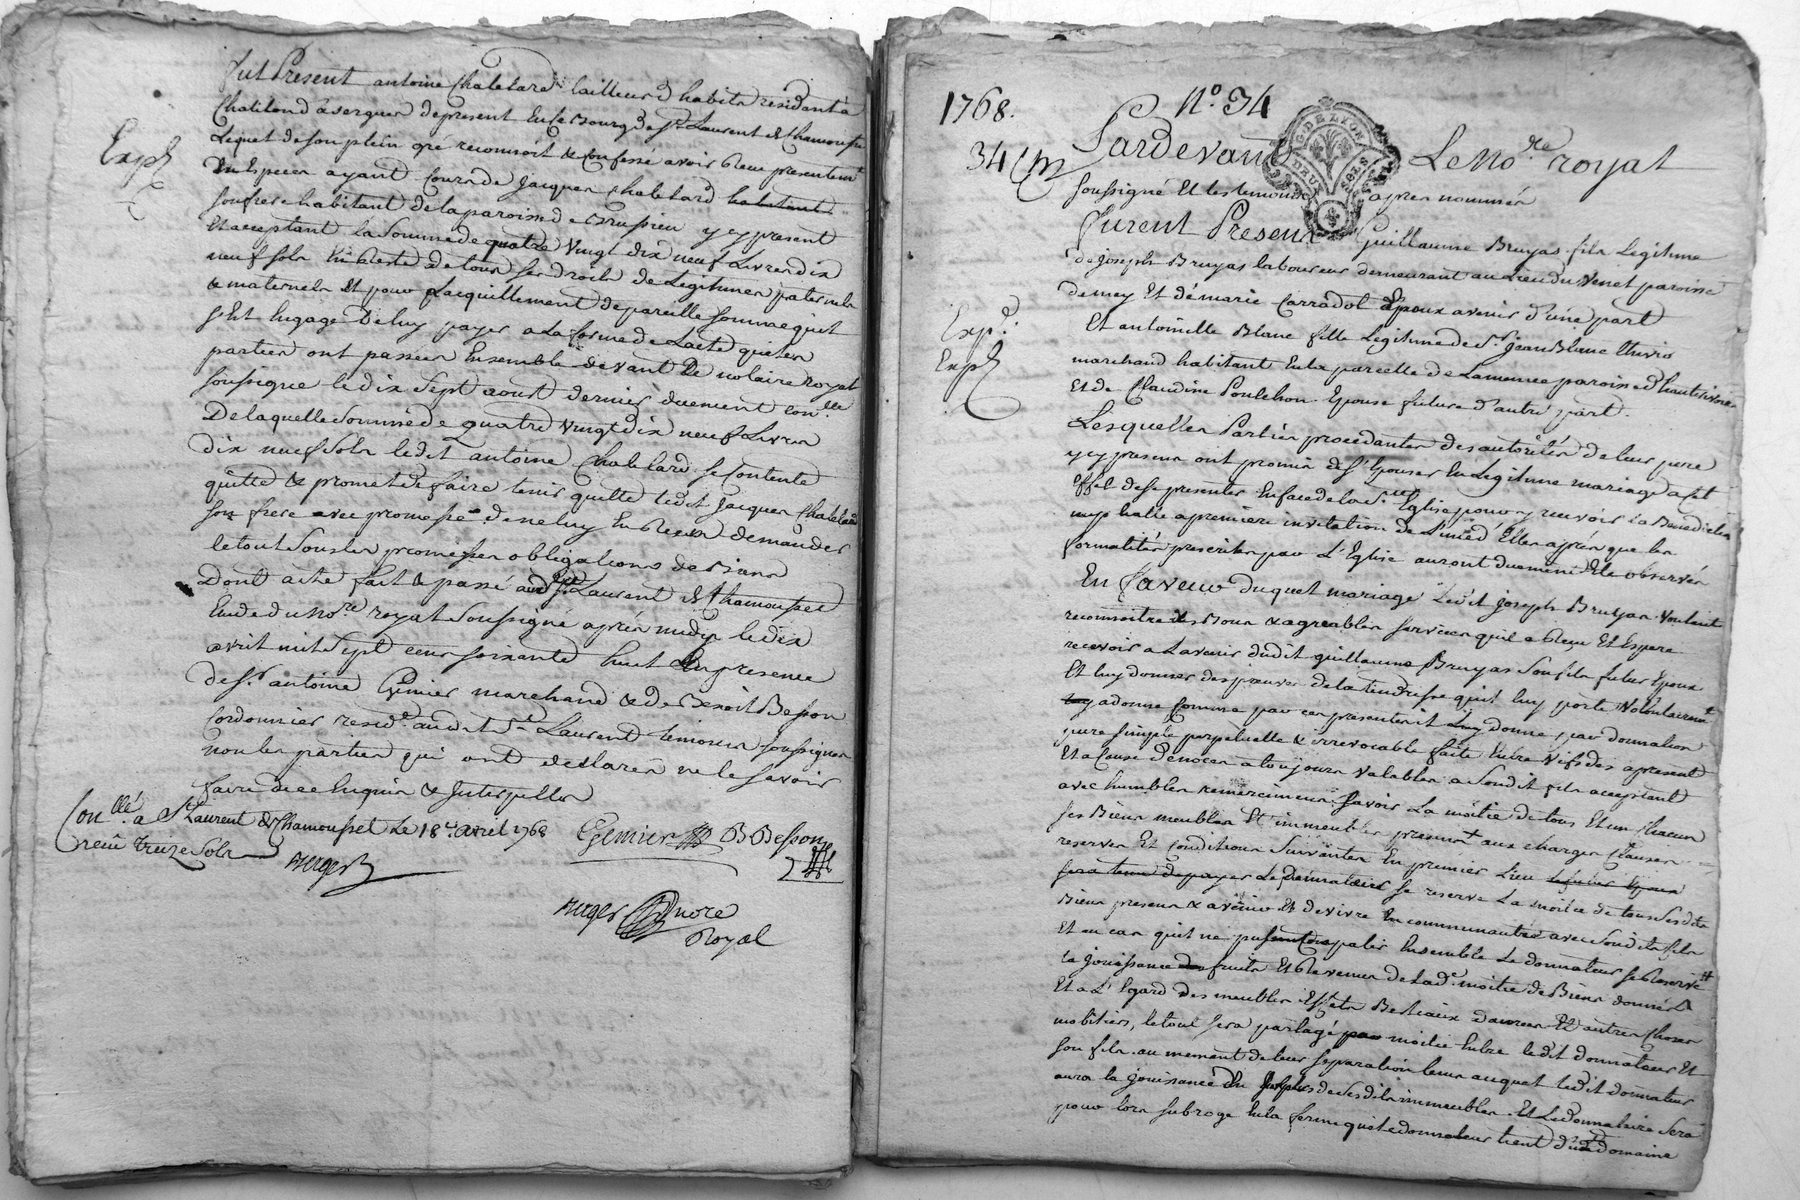 fut Present antoine Chatelard tailleur d habits residant a
Chatillon d'asergues depresent en ce Bourg de St Laurent de Chamousset
Lequel de son plein gré reconnoit & confesse avoir receu presentemt
En Especes ayant Cours de Jacques Chatelard habitant
son frere habitant de la paroisse de Brussieu y cy present
Et acceptant la somme de quatre vingt dix neuf Livres dix
neuf sols En Reste de tous ses droits de Legitimes paternels
& maternels Et pour Lacquittement de pareille somme quil
s'Est Engagé De luy payer a La forme de Lacte que les
parties ont passées Ensemble devant Le notaire royal
soussigné le dix sept aoust dernier duement Conllé
De laquelle somme de quatre vingt dix neuf Livres
dix neuf sols ledit antoine Chatelard se Contente
quitte & promet de faire tenir quitte ledit Jacques Chatelard
son frere avec promesse de ne luy En Rien demander
le tout sous les promesses obligations de Biens
Dont acte fait & passé aud St Laurent de Chamousset
Etude du Nore royal soussigné après midy le dix
avril mil sept cens soixante huit En presence
de sr antoine Gemier marchand & de Benoit Besson
Cordonnier residt audit St Laurent temoins soussignes
non les parties qui ont déclarés ne le savoir
faire de ce Enquis & Interpellés
Exp
Conllé a St Laurent de Chamousset Le 18e avril 1768
receu treize sols
Berger
Gemier
B Besson
Berger nore
Royal
1768.
No. 34
34
Pardevant Le Nore royal
G. DE LYON
DEUX SOLS
soussigné Et les temoins apres nommés
Furent Presens Guillaume Bruyas fils Legitime
de joseph Bruyas laboureur demeurant au Lieu du Venet paroisse
demey Et de marie Carradot Epoux avenir d'une part
Et antoinette Blanc fille Legitime de Sr jean Blanc
marchand habitant En la parcelle de Lamence paroisse d'hauterivoire
Et de Claudine Ponchon Epouse future d'autre part.
Expé.
Exp
Lesquelles Parties procedantes des autorités de leur pere
y cy presens ont promis de s'Epouser En Legitime mariage a cet
Effet de se presenter En face de la Ste Eglise pour y recevoir La Benediction
nuptialle a premiere invitation de L'une d'Elles après que les
formalités prescrites par L'Eglise auront duement Eté observés
En faveur duquel mariage Ledit joseph Bruyas voulant
reconnoitre les Bons & agreables services quil a Receu Et Espere
recevoir a Lavenir dudit guillaume Bruyas son fils futur Epoux
Et luy donner des preuves de la tendresse quil luy porte volontairemt
luy a donné Comme par ces presentes il luy donne par donnation
pure simple perpetuelle & irrevocable faite Entre vifs des apresent
Et a Cause de noces a toujours valables a sondit fils acceptant
avec humbles remercimens savoir La moitié de tous Et un Chacun
ses Biens meubles Et immeubles presens aux charges Clauses
reserves Et Conditions suivantes En premier Lieu le futur Epoux
sera tenu de payer Le Donnateur se reserve La moitié de tous ses dits
Biens presens & avenir Et de vivre En communauté avec sondit fils
Et au cas quil ne pussent Compatir Ensemble Le donnateur se Reserve
la jouissance des fruits Et Revenus de Lade moitié de Biens donnés
Et a L'Egard des meubles Effets Bestiaux danrées Et autres Choses
mobiliers, le tout sera partagé par moitié Entre ledit donnateur Et
son fils au moment de leur separation Lors auquel ledit donnateur
aura la jouissance du surplus de ses dits immeubles Et Ledonnataire sera
pour lors subrogé En la ferme que le donnateur tient d'un domaine